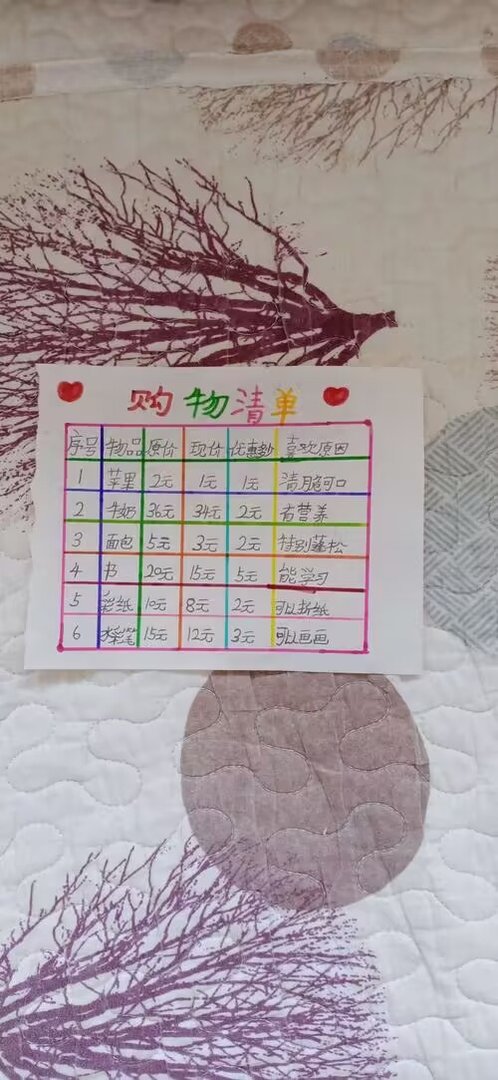 购物清单
序号 物品 原价 现价 优惠多少 喜欢原因
1 苹果 2元 1元 1元 清脆可口
2 牛奶 36元 34元 2元 有营养
3 面包 5元 3元 2元 特别蓬松
4 书 20元 15元 5元 能学习
5 彩纸 10元 8元 2元 可以折纸
6 水彩笔 15元 12元 3元 可以画画